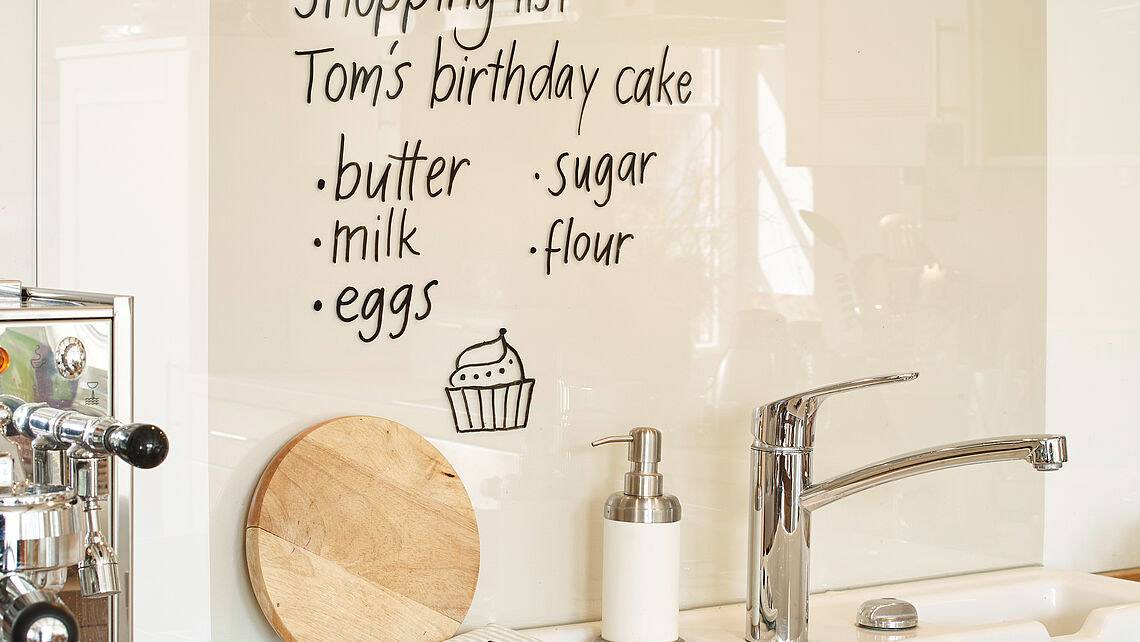 Shopping list
Tom's birthday cake
• butter
• milk
• eggs
• sugar
• flour